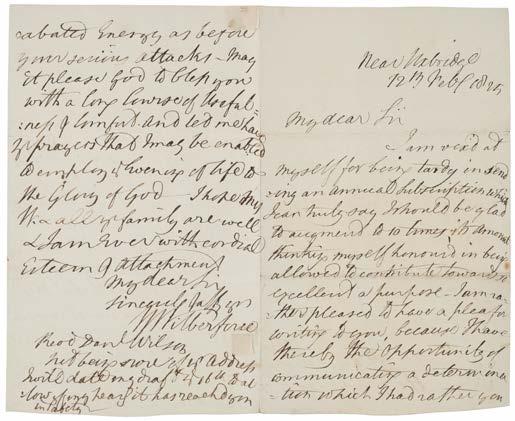 Near Uxbridge
12th Feby 1825
My dear Sir
I am vex'd at
myself for being tardy in send
ing an annual Subscription which
I can truly say I should be glad
to augment to 10 times its amount
thinking myself honour'd in being
allowed to contribute towards so
excellent a purpose - I am ra-
ther pleased to have a plea for
writing to you, because I have
thereby the opportunity of
communicating a determina
tion which I had rather you
abated Energy as before
your serious attacks - May
it please God to bless you
with a long Course of Useful-
ness & Comfort and let me have
yr prayers that I may be enabled
to employ ye Evening of life to
the Glory of God - I hope Mrs
W. & all yr family are well
& I am Ever with cordial
Esteem & attachment
My dear Sr
Sincerely
W Wilberforce
Revd Danl Wilson
Not being sure of yr address
I will date my draft ye 16th to al
low of my hearing it has reached you
in safety